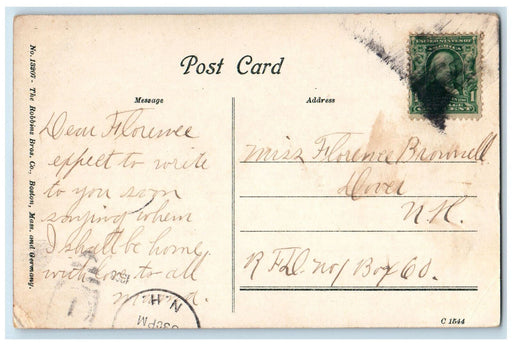 No. 13207 - The Robbins Bros. Co., Boston, Mass. and Germany.
Post Card
Message
Address
Dear Florence
expect to write
to you soon
saying when
I shall be home
with love to all
Miss Florence Brownell
Dover
N.H.
R F.D. No 1 Box 60.
N.H.
30PM
1
C 1544